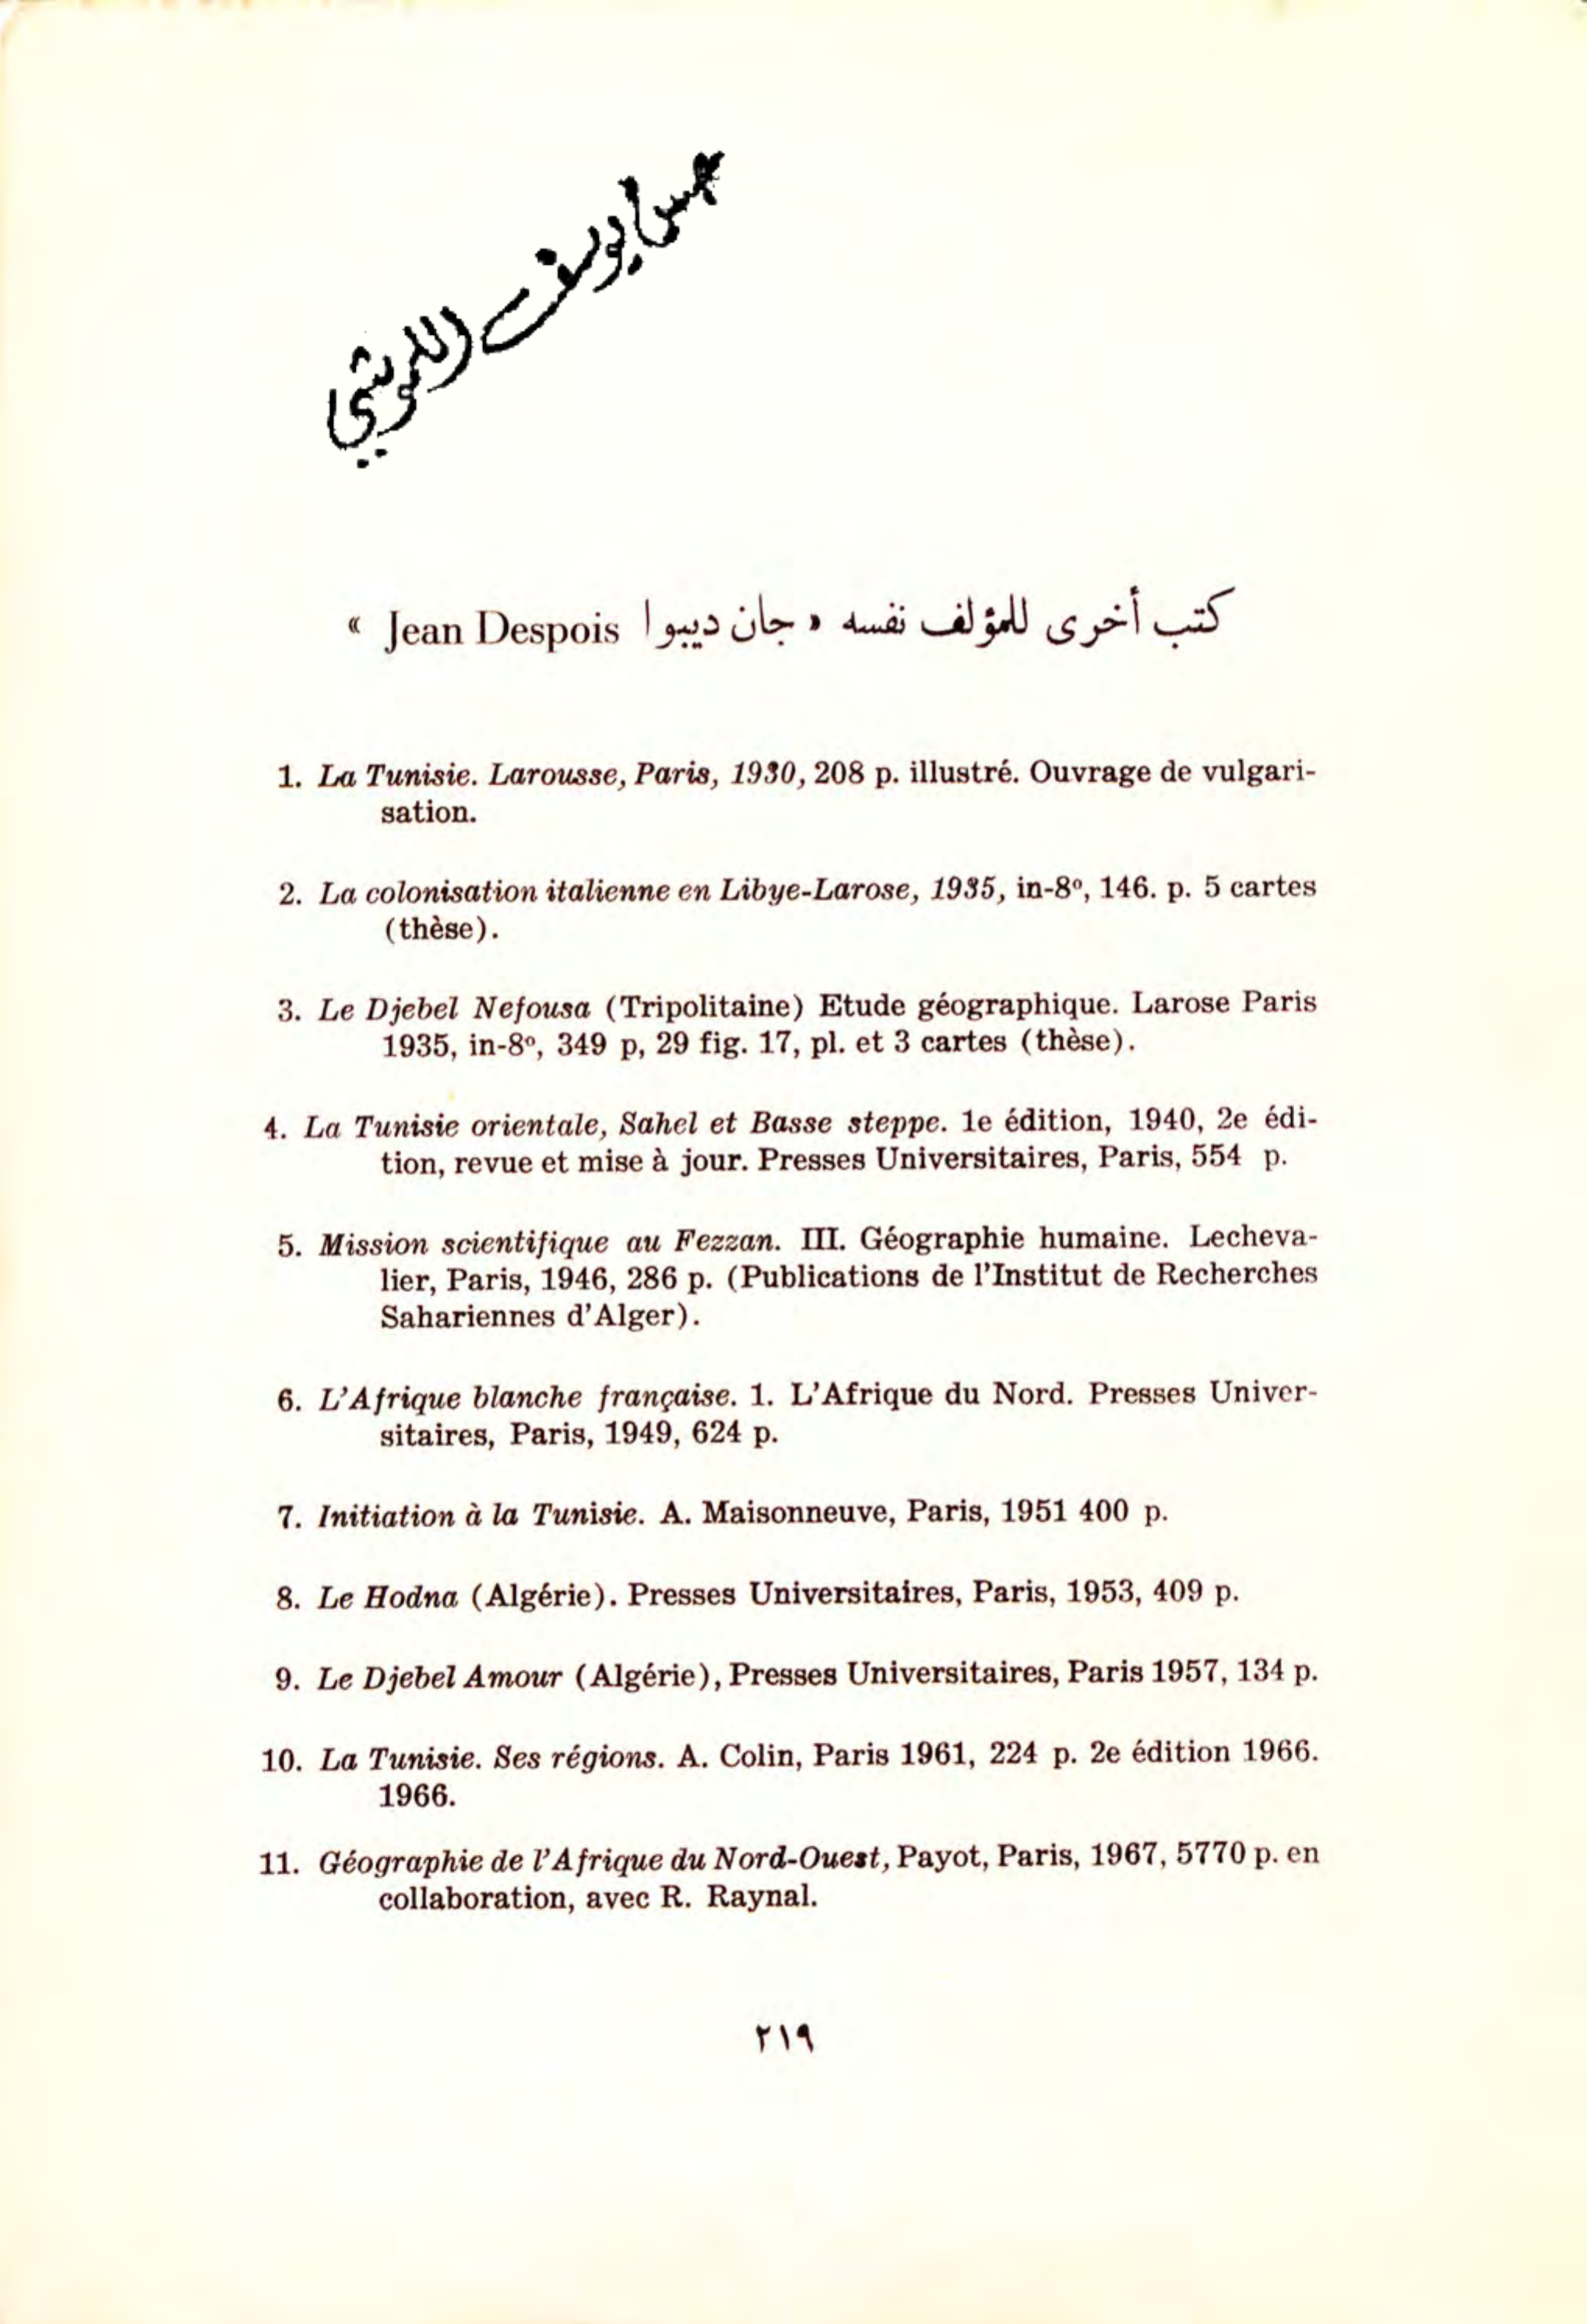 يوسف
كتب أخرى للمؤلف نفسه « جان ديبوا Jean Despois »
1. La Tunisie. Larousse, Paris, 1930, 208 p. illustré. Ouvrage de vulgari-
sation.
2. La colonisation italienne en Libye-Larose, 1935, in-8º, 146. p. 5 cartes
(thèse).
3. Le Djebel Nefousa (Tripolitaine) Etude géographique. Larose Paris
1935, in-8º, 349 p, 29 fig. 17, pl. et 3 cartes (thèse).
4. La Tunisie orientale, Sahel et Basse steppe. 1e édition, 1940, 2e édi-
tion, revue et mise à jour. Presses Universitaires, Paris, 554 p.
5. Mission scientifique au Fezzan. III. Géographie humaine. Lecheva-
lier, Paris, 1946, 286 p. (Publications de l'Institut de Recherches
Sahariennes d'Alger).
6. L'Afrique blanche française. 1. L'Afrique du Nord. Presses Univer-
sitaires, Paris, 1949, 624 p.
7. Initiation à la Tunisie. A. Maisonneuve, Paris, 1951 400 p.
8. Le Hodna (Algérie). Presses Universitaires, Paris, 1953, 409 p.
9. Le Djebel Amour (Algérie), Presses Universitaires, Paris 1957, 134 p.
10. La Tunisie. Ses régions. A. Colin, Paris 1961, 224 p. 2e édition 1966.
1966.
11. Géographie de l'Afrique du Nord-Ouest, Payot, Paris, 1967, 5770 p. en
collaboration, avec R. Raynal.
٢١٩